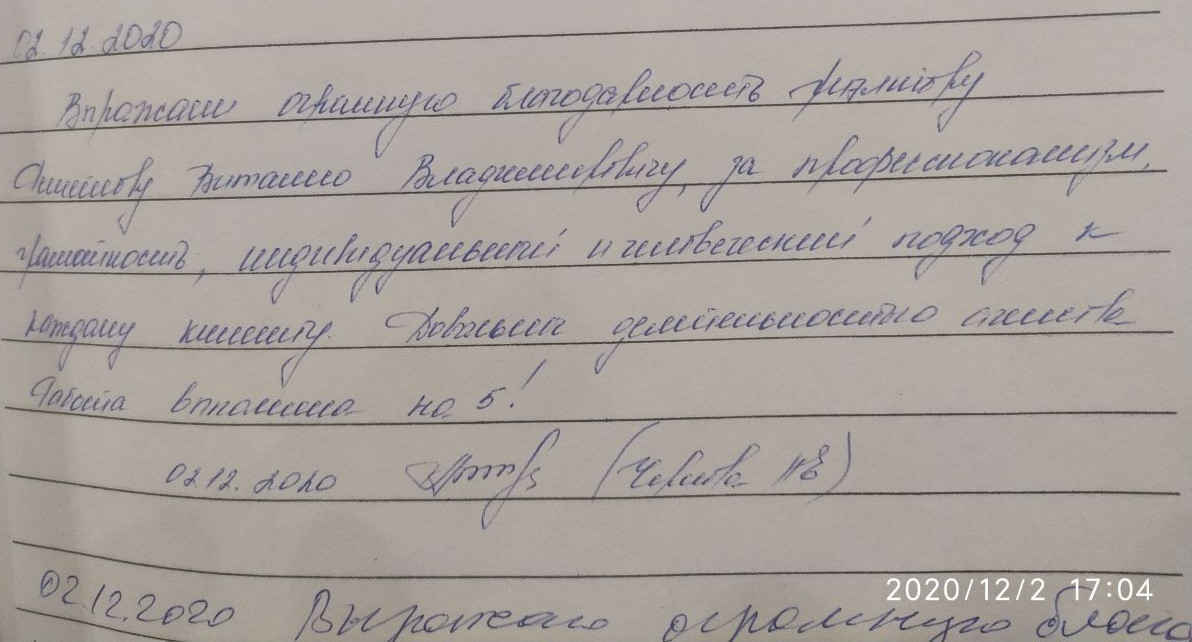 02.12.2020
Выражаю огромную благодарность риэлтору
Виталию Владимировичу, за профессионализм,
грамотность, индивидуальный и человеческий подход к
каждому клиенту. Довольна деятельностью агентства
Работа выполнена на 5!
02.12.2020
02.12.2020 Выражаю огромную благо
2020/12/2 17:04